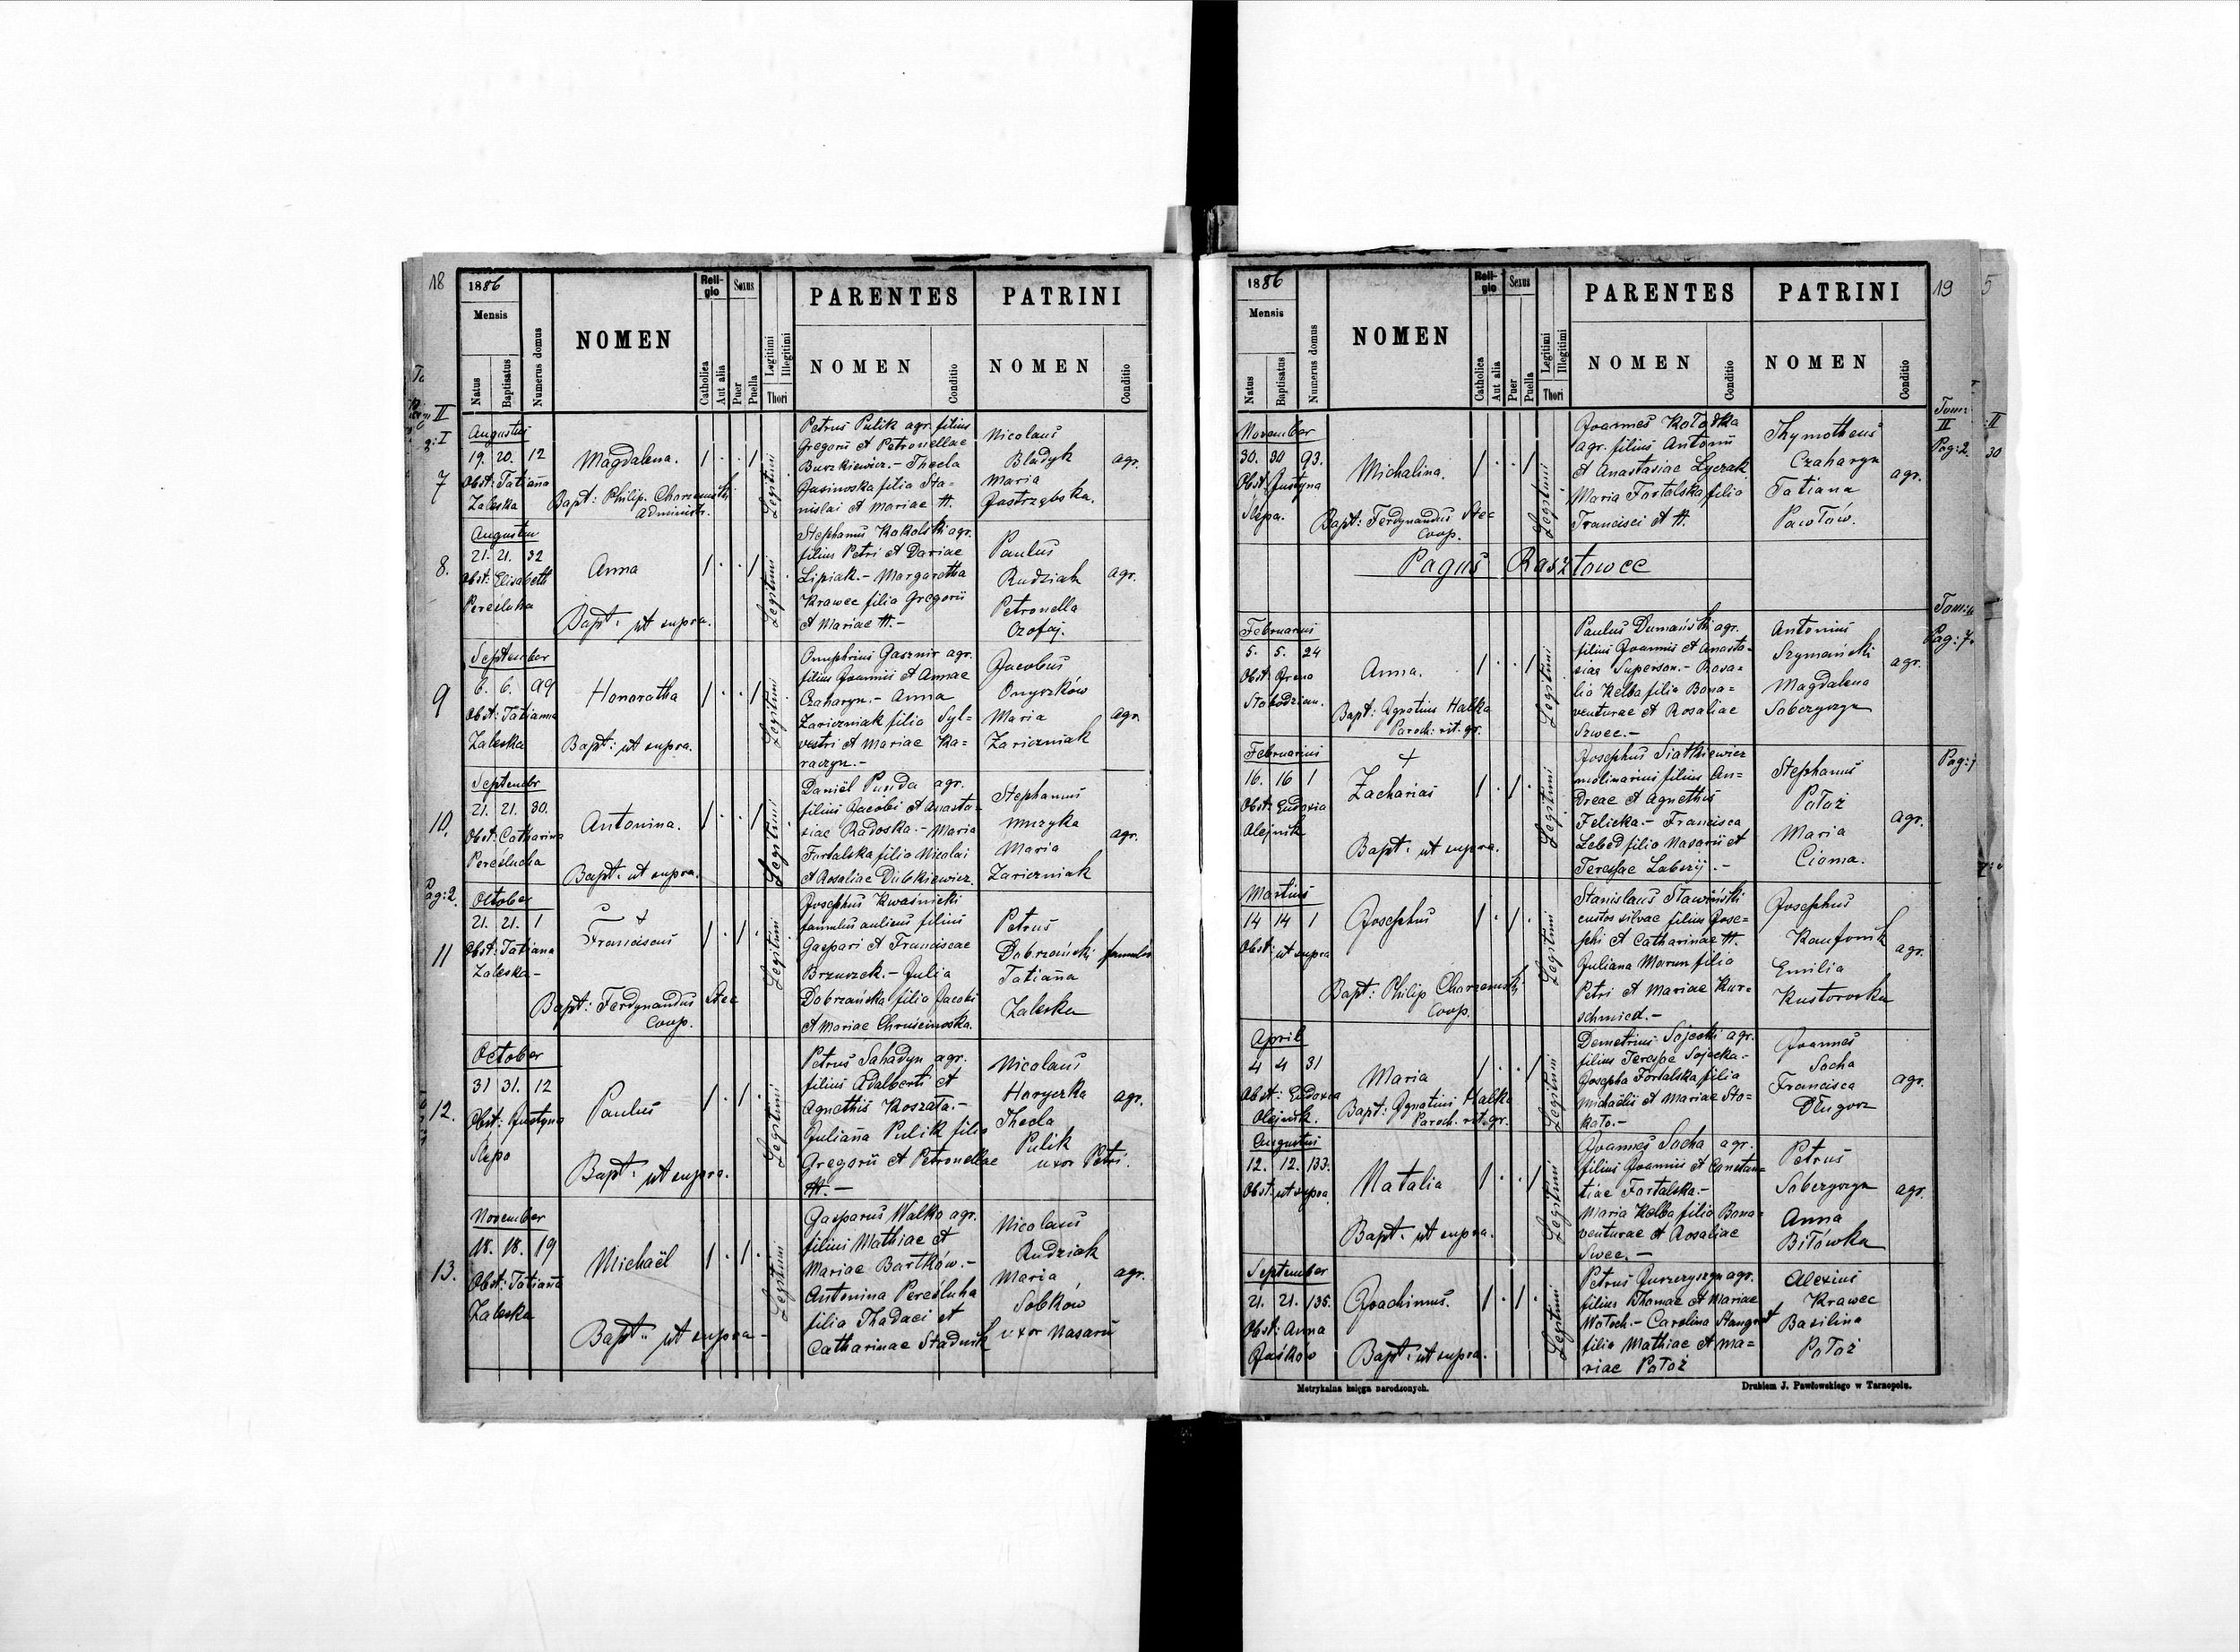 18
1886
Mensis
Natus
Baptisatus
Numerus domus
NOMEN
Reli-
gio
Catholica
Aut alia
Sexus
Puer
Puella
Legitimi
Illegitimi
Thori
PARENTES
NOMEN
Conditio
PATRINI
NOMEN
Conditio
II
7
Augustus
19. 20. 12
Obst: Tatiana
Zaleska
Magdalena.
Bapt: Philip. Charzewski
Administr.
Legitimi
Petrus Pulik agr. filius
Gregorii et Petronellae
Burzkiewicz. - Thecla
Jasinoska filia Sta=
nislai et Mariae #.
Nicolaus
Bladyk
Maria
Jastrzębska.
agr.
8.
Augustus
21. 21. 32
Obst: Elisabeth
Peresluha
Anna
Bapt: ut supra.
Legitimi
Stephanus Kokolski agr.
filius Petri et Dariae
Lipiak. - Margaretha
Krawec filia Gregorii
et Mariae #. -
Paulus
Rudziak
Petronella
Ozofaj.
agr.
9
September
6. 6. 49
Obst: Tatianna
Zaleska
Honoratha
Bapt: ut supra.
Legitimi
Onuphrius Gasznir agr.
filius Joannis et Annae
Czaharyn. - Anna
Zariczniak filia Syl=
vestri et Mariae Ka=
raczyn. -
Jacobus
Onyszków
Maria
Zariczniak
agr.
10.
September
21. 21. 30.
Obst: Catharina
Peresłucha
Antonina.
Bapt: ut supra.
Legitimi
Daniel Punda agr.
filius Jacobi et Anasta=
siae Radoska. - Maria
Fortalska filia Nicolai
et Rosaliae Dubkiewicz.
Stephanus
Muzyka
Maria
Zariczniak
agr.
Pag: 2.
11
October
21. 21. 1
Obst: Tatiana
Zaleska -
Franciscus
Bapt: Ferdynandus Stec
Coop.
Legitimi
Josephus Kwaśnicki
famulus aulicus filius
Gaspari et Franciscae
Brzuszek. - Julia
Dobrzańska filia Jacobi
et Mariae Chruścinoska.
Petrus
Dobrzański
Tatiana
Zaleska
famulus
12.
October
31 31. 12
Obst: Justyna
Slepa
Paulus
Bapt: ut supra.
Legitimi
Petrus Sahadyn agr.
filius Adalberti et
Agnethis Koszała. -
Juliana Pulik filia
Gregorii et Petronellae
#. -
Nicolaus
Haryczka
Thecla
Pulik
uxor Petri.
agr.
13.
November
18. 18. 19
Obst: Tatiana
Zaleska
Michaël
Bapt: ut supra -
Legitimi
Gasparus Walko agr.
filius Mathiae et
Mariae Bartków. -
Antonina Peresluha
filia Thadaei et
Catharinae Stadnik
Nicolaus
Rudziak
Maria
Sobków
uxor Nasarii
agr.
1886
Mensis
Natus
Baptisatus
Numerus domus
NOMEN
Reli-
gio
Catholica
Aut alia
Sexus
Puer
Puella
Legitimi
Illegitimi
Thori
PARENTES
NOMEN
Conditio
PATRINI
NOMEN
Conditio
19
5
November
30. 30 93.
Obst: Justyna
Slepa.
Michalina.
Bapt: Ferdynandus Stec
Coop.
Legitimi
Joannes Kołodka
agr. filius Antonii
et Anastasiae Lyczak
Maria Fortalska filia
Francisci et #.
Thymotheus
Czaharyn
Tatiana
Pawłów.
agr.
Tom:
II
Pag: 2.
30
Pagus Rasztowce
Februarius
5. 5. 24
Obst: Irena
Słobodzian.
Anna.
Bapt: Ignatius Halka
Paroch. rit. gr.
Legitimi
Paulus Dumański agr.
filius Joannis et Anasta=
siae Superson. - Rosa=
lia Kelba filia Bona=
venturae et Rosaliae
Szwec. -
Antonius
Szymański
Magdalena
Soberyszyn
agr.
Pag: 7.
Februarius
16. 16 1
Obst: Eudoxia
Olejnik
Zacharias
Bapt: ut supra.
Legitimi
Josephus Siatkiewicz
molinarius filius An=
dreae et Agnethis
Felicka. - Francisca
Lebed filia Nasarii et
Teressae Labzij. -
Stephanus
Potoż
Maria
Ciama.
agr.
Martius
14 14 1
Obst: ut supra
Josephus
Bapt: Philip Charzewski
Coop.
Legitimi
Stanislaus Stawiński
custos silvae filius Jose=
phi et Catharinae #.
Juliana Marun filia
Petri et Mariae Kur=
schmied. -
Josephus
Kanfonik
Emilia
Kustoroska
agr.
April
4 4 31
Obst: Eudoxia
Olejnik.
Maria
Bapt: Ignatius Halka
Paroch. rit. gr.
Legitimi
Demetrius Sojecki agr.
filius Teressae Sojecka. -
Josepha Fortalska filia
Michaëlis et Mariae Sto=
kato. -
Joannes
Socha
Francisca
Długosz
agr.
Augustus
12. 12. 133.
Obst: ut supra
Natalia
Bapt: ut supra.
Legitimi
Joannes Socha agr.
filius Joannis et Constan=
tiae Fortalska. -
Maria Kelba filia Bona=
venturae et Rosaliae
Swec. -
Petrus
Soberyszyn
Anna
Biłówka
agr.
September
21. 21. 135.
Obst: Anna
Jaśków
Joachimus.
Bapt: ut supra.
Legitimi
Petrus Jurzeryszyn agr.
filius Thomae et Mariae
Wołoch. - Carolina Stangret
filia Mathiae et Ma=
riae Potoż
Alexius
Krawec
Basilina
Potoż
Metrykalna księga narodzonych.
Drukiem J. Pawłowskiego w Tarnopolu.